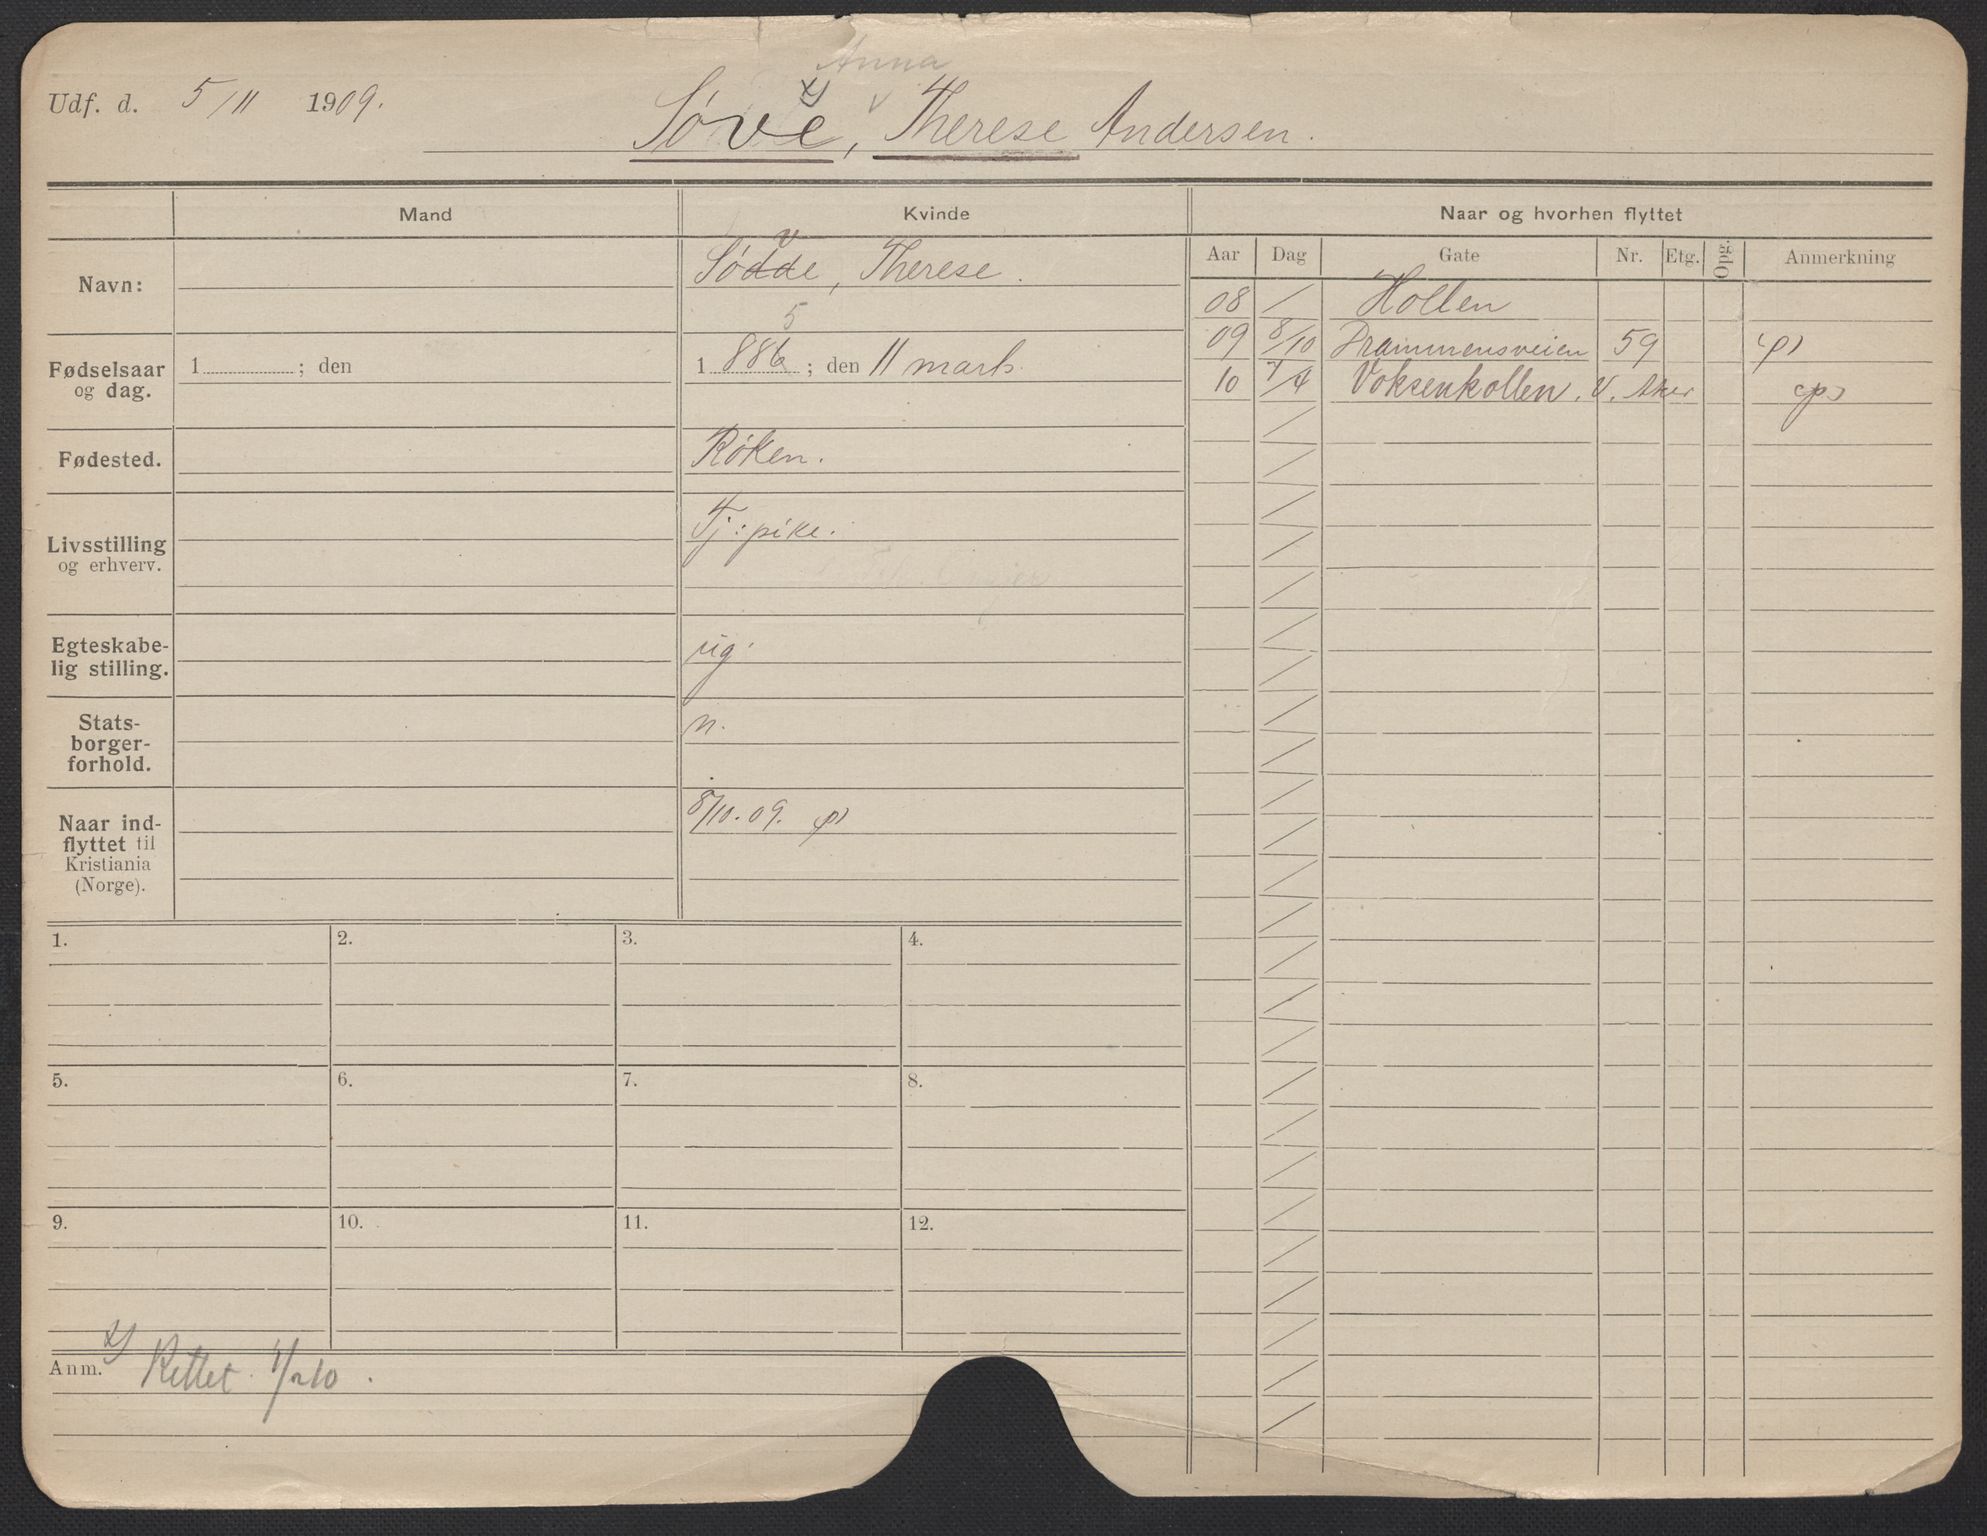 Anna
Udf. d. 5/11 1909. Søve, Therese Andersen.
Mand Kvinde Naar og hvorhen flyttet
Aar Dag Gate Nr. Etg. Opg. Anmerkning
Navn: v
Sødde, Therese.
08 / Hollen
09 8/10 Drammensveien 59
10 7/4 Voksenkollen. V. Aker
5
Fødselsaar og dag. 1 ; den 1 886 ; den 11 marts.
Fødested. Røken.
Livsstilling og erhverv. Tj: pike.
Egteskabe-
lig stilling. ug.
Stats-
borger-
forhold. n.
Naar ind-
flyttet til
Kristiania
(Norge). 8/10. 09.
1. 2. 3. 4.
5. 6. 7. 8.
9. 10. 11. 12.
Anm. x) Rettet. 1/2 10.